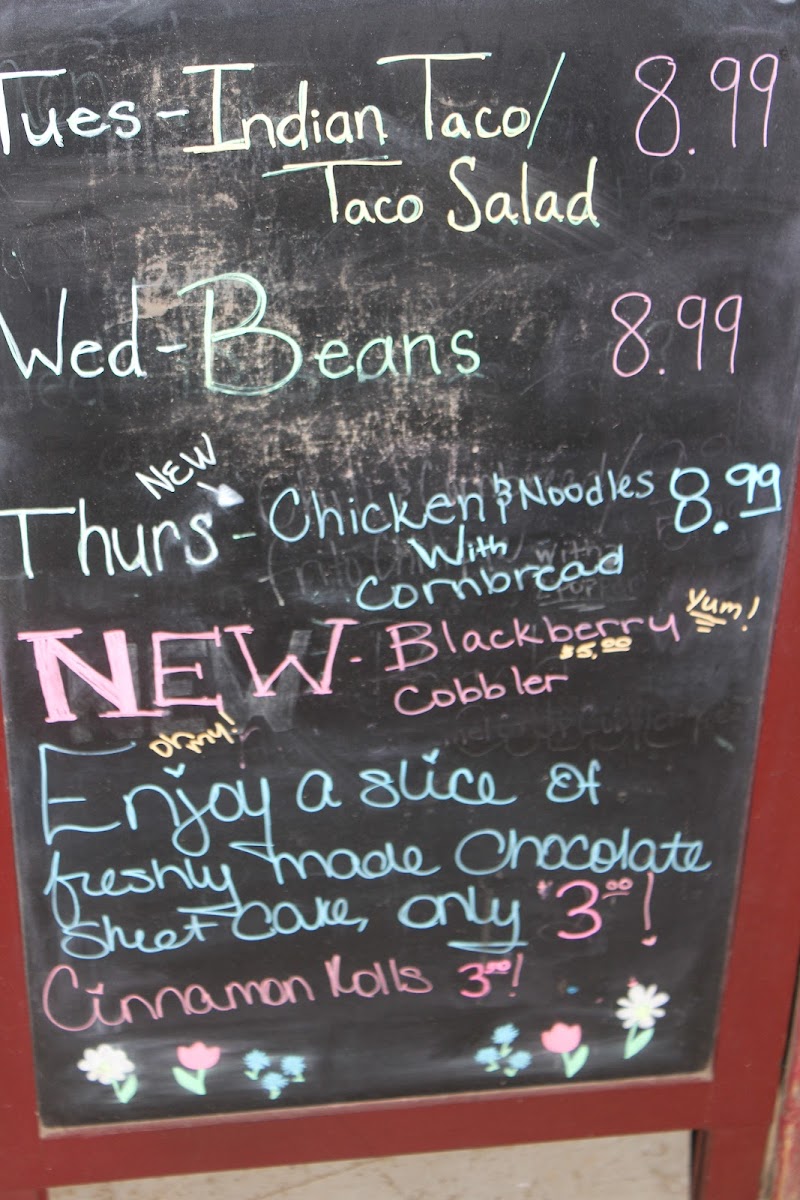 Tues - Indian Taco/ 8.99
Taco Salad
Wed - Beans 8.99
NEW
Thurs - Chicken & Noodles 8.99
With
Cornbread
NEW - Blackberry Yum!
$5.00
Cobbler
Enjoy a slice of
freshly made Chocolate
Sheet Cake, only $3.00!
Cinnamon Rolls 3.50!